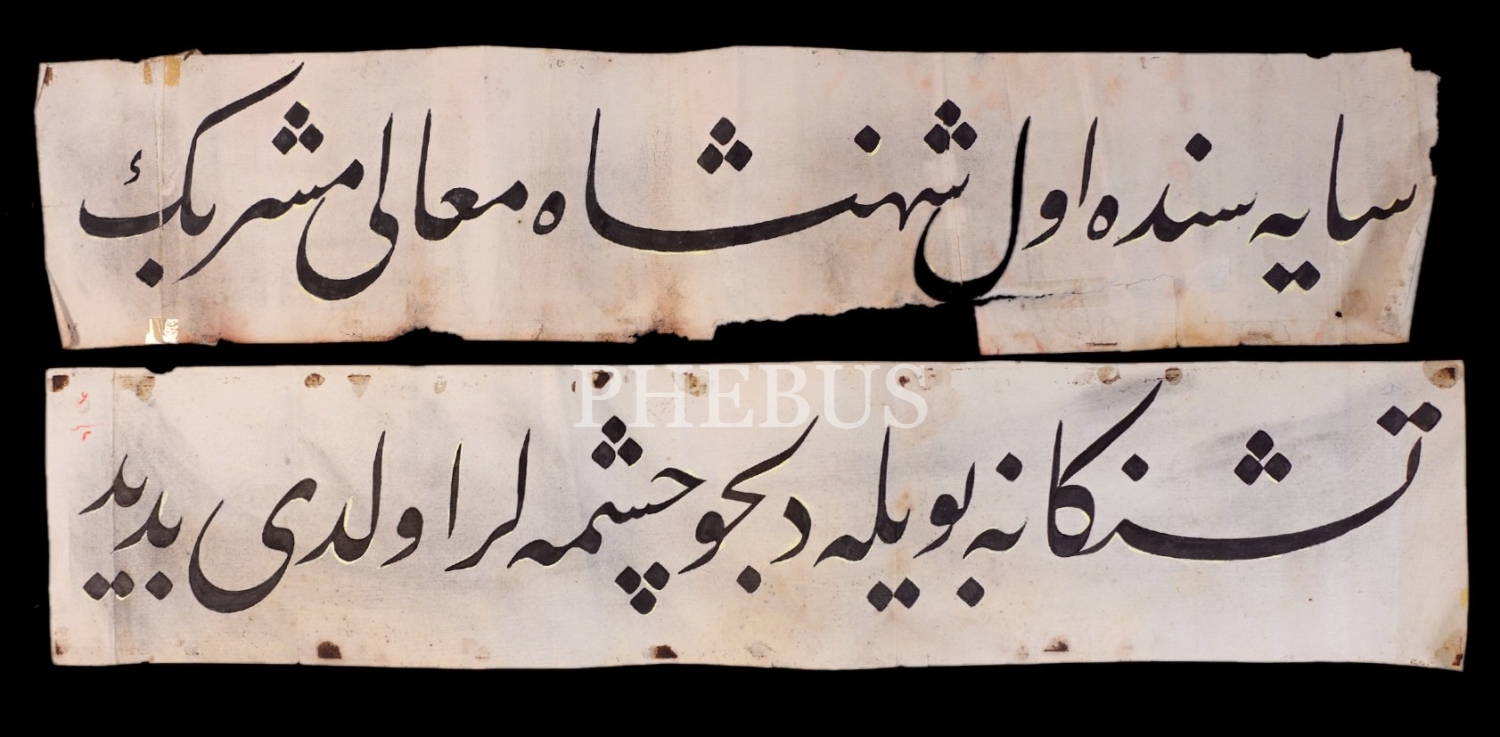 سایه سنده اول شهنشاه معالی مشربك
PHEBUS
تشنكانه بویله دلجو چشمه لر اولدی بدید